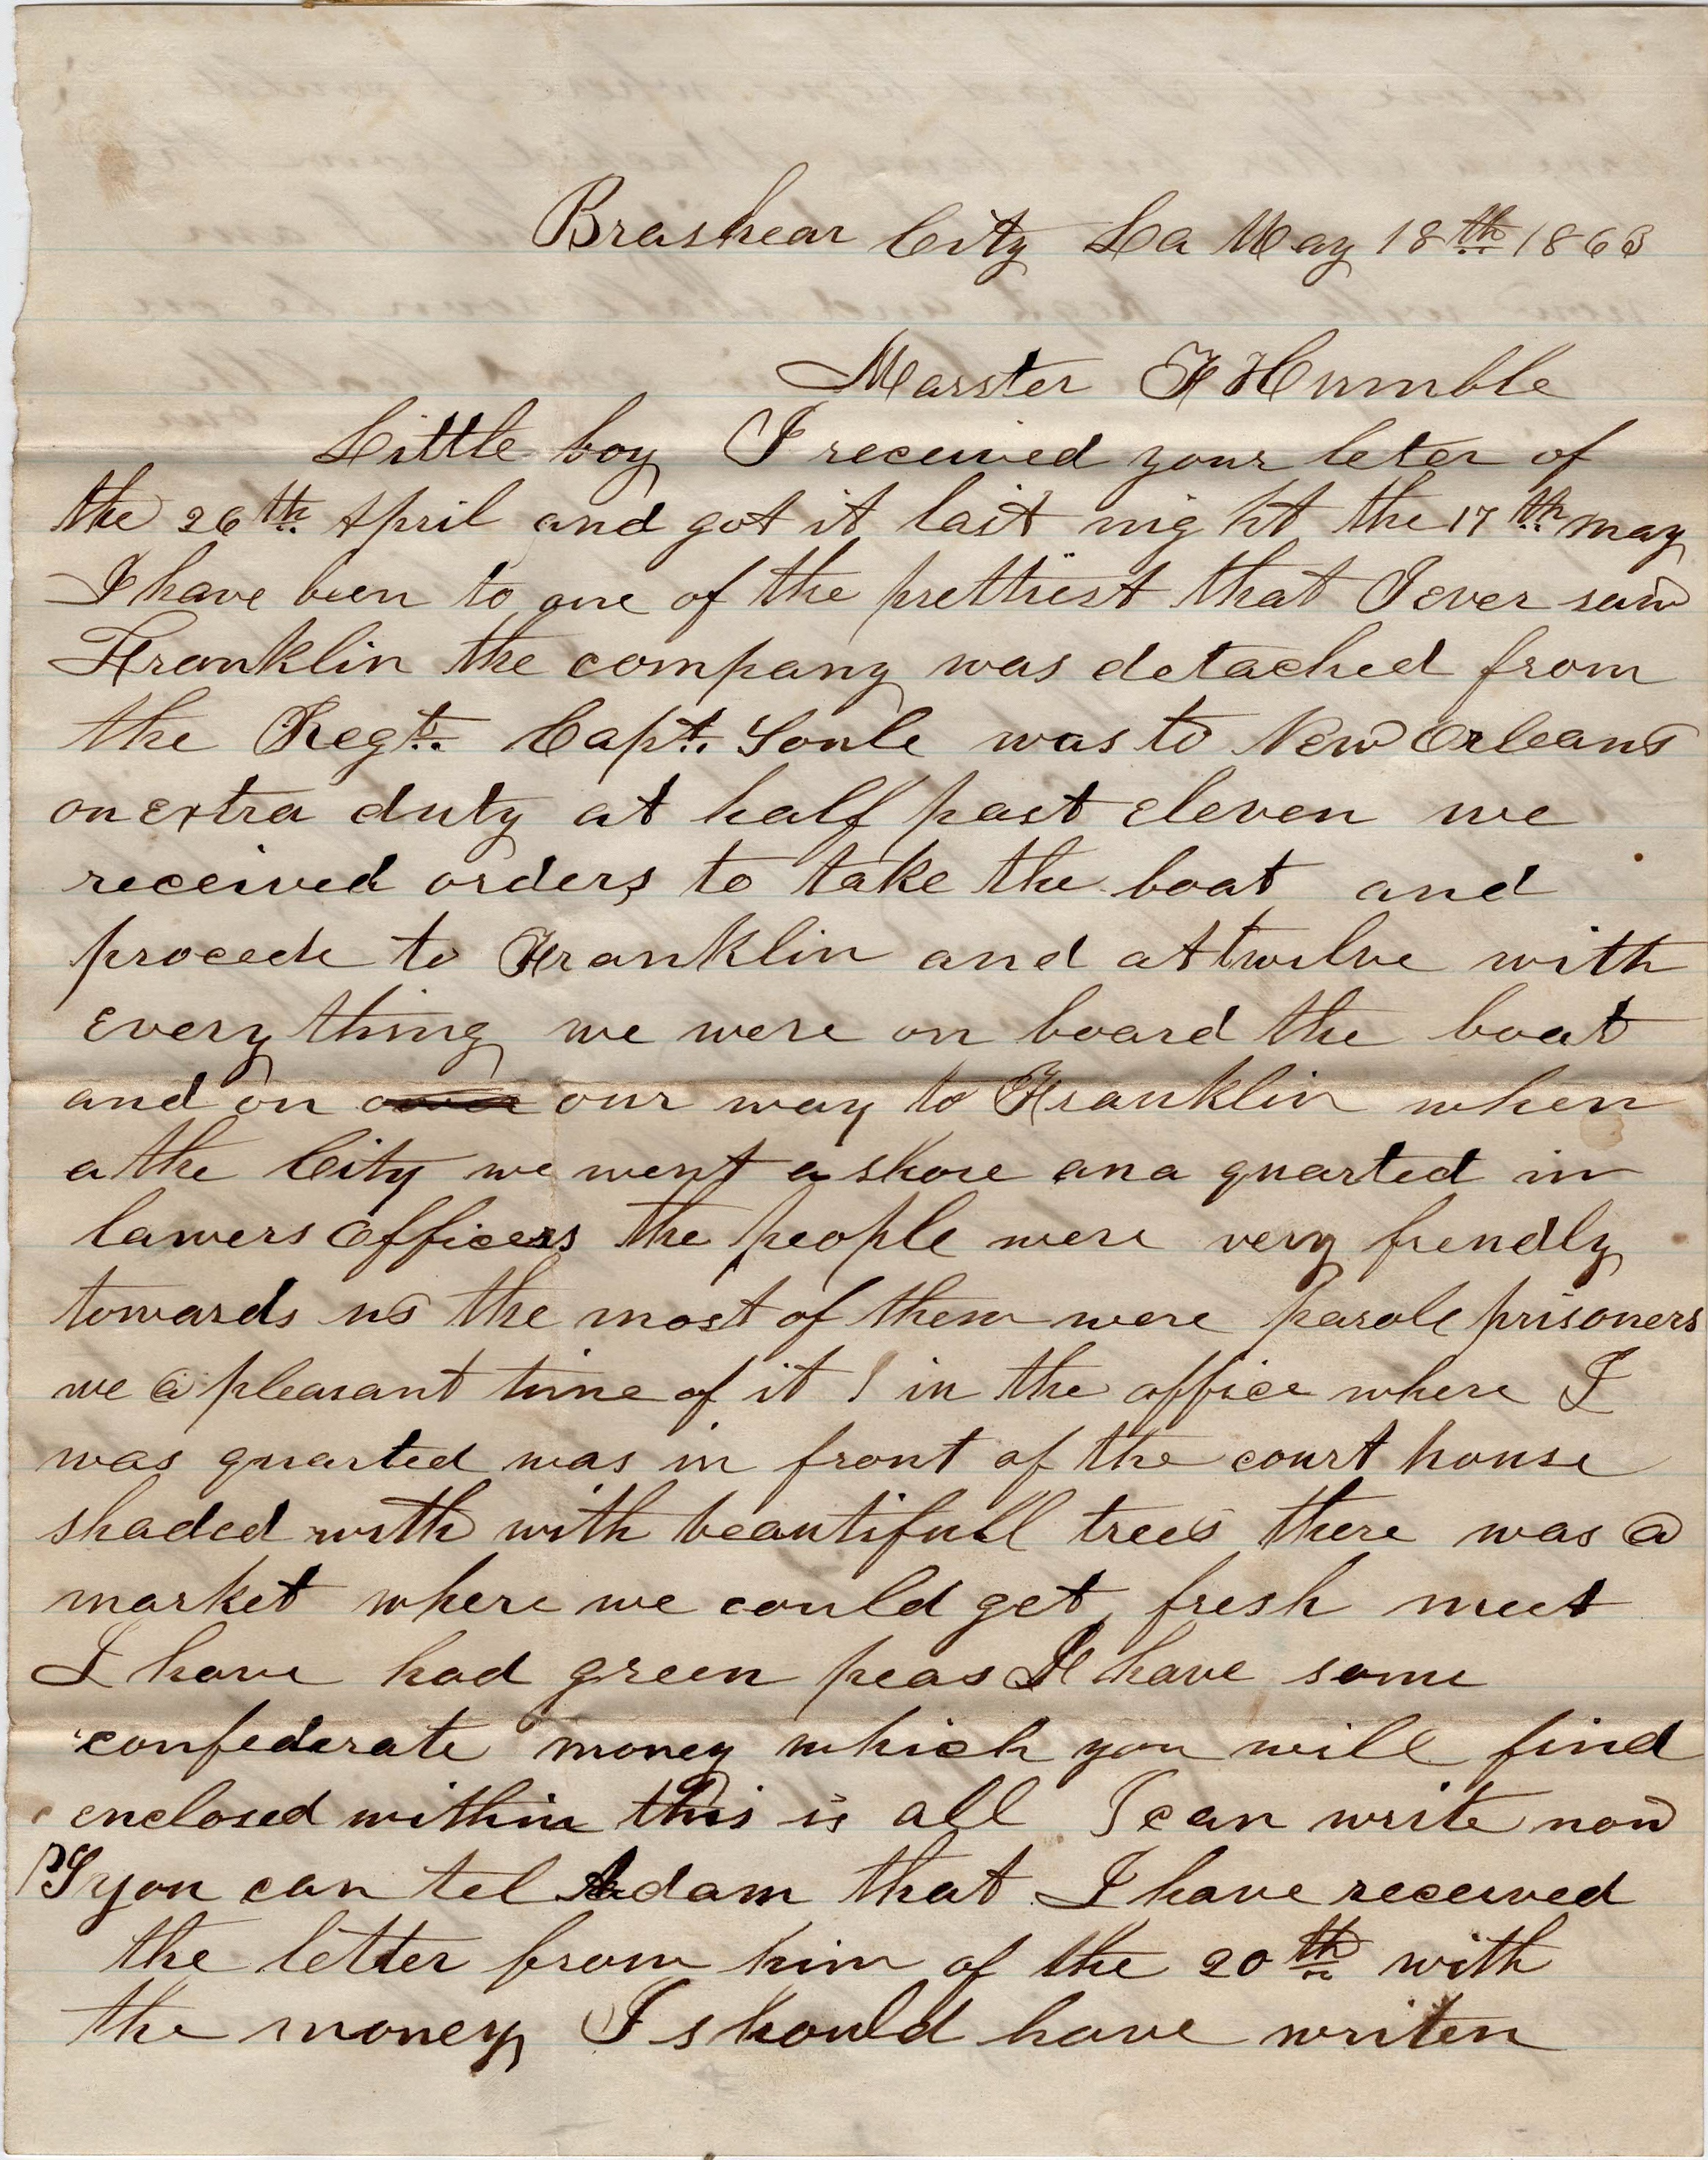 Brashear City La May 18th 1863
Marster F Humble
Little boy I received your leter of
the 26th April and got it last night the 17th may
I have been to one of the prettiest that I ever saw
Franklin the company was detached from
the Regt. Capt. Soule was to New Orleans
on extra duty at half past eleven we
received orders to take the boat and
procede to Franklin and at twelve with
everything we were on board the boat
and on our way to Franklin when
a the City we went a shore ana quarted in
lawers officers the people were very frendly
towards us the most of them were parole prisoners
we a pleasant time of it I in the office where I
was quarted was in front of the court house
shaded with with beautifull trees there was a
market where we could get fresh meet
I have had green peas I have some
confederate money which you will find
enclosed within this is all I can write now
PS you can tel Adam that I have received
the letter from him of the 20th with
the money I should have writen